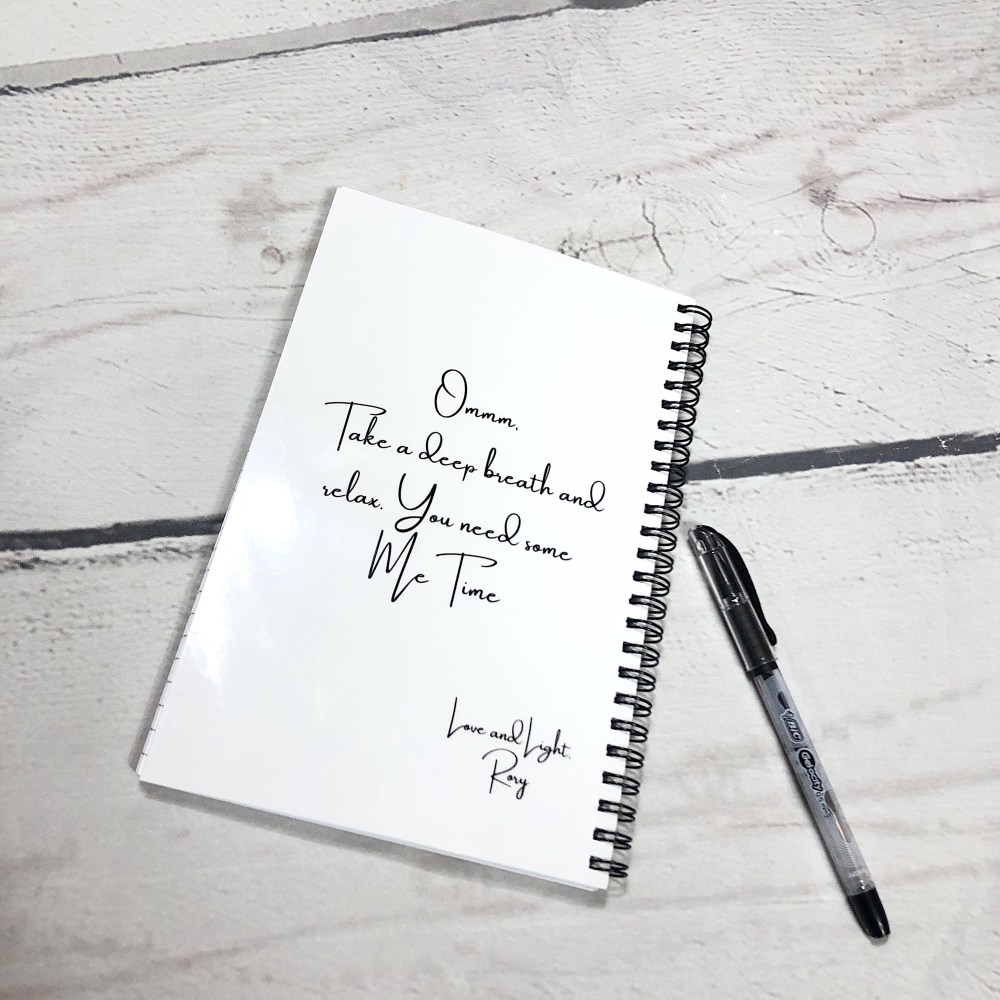 Ommm,
Take a deep breath and
relax. You need some
Me Time
Love and Light,
Rory
BIC Gelocity